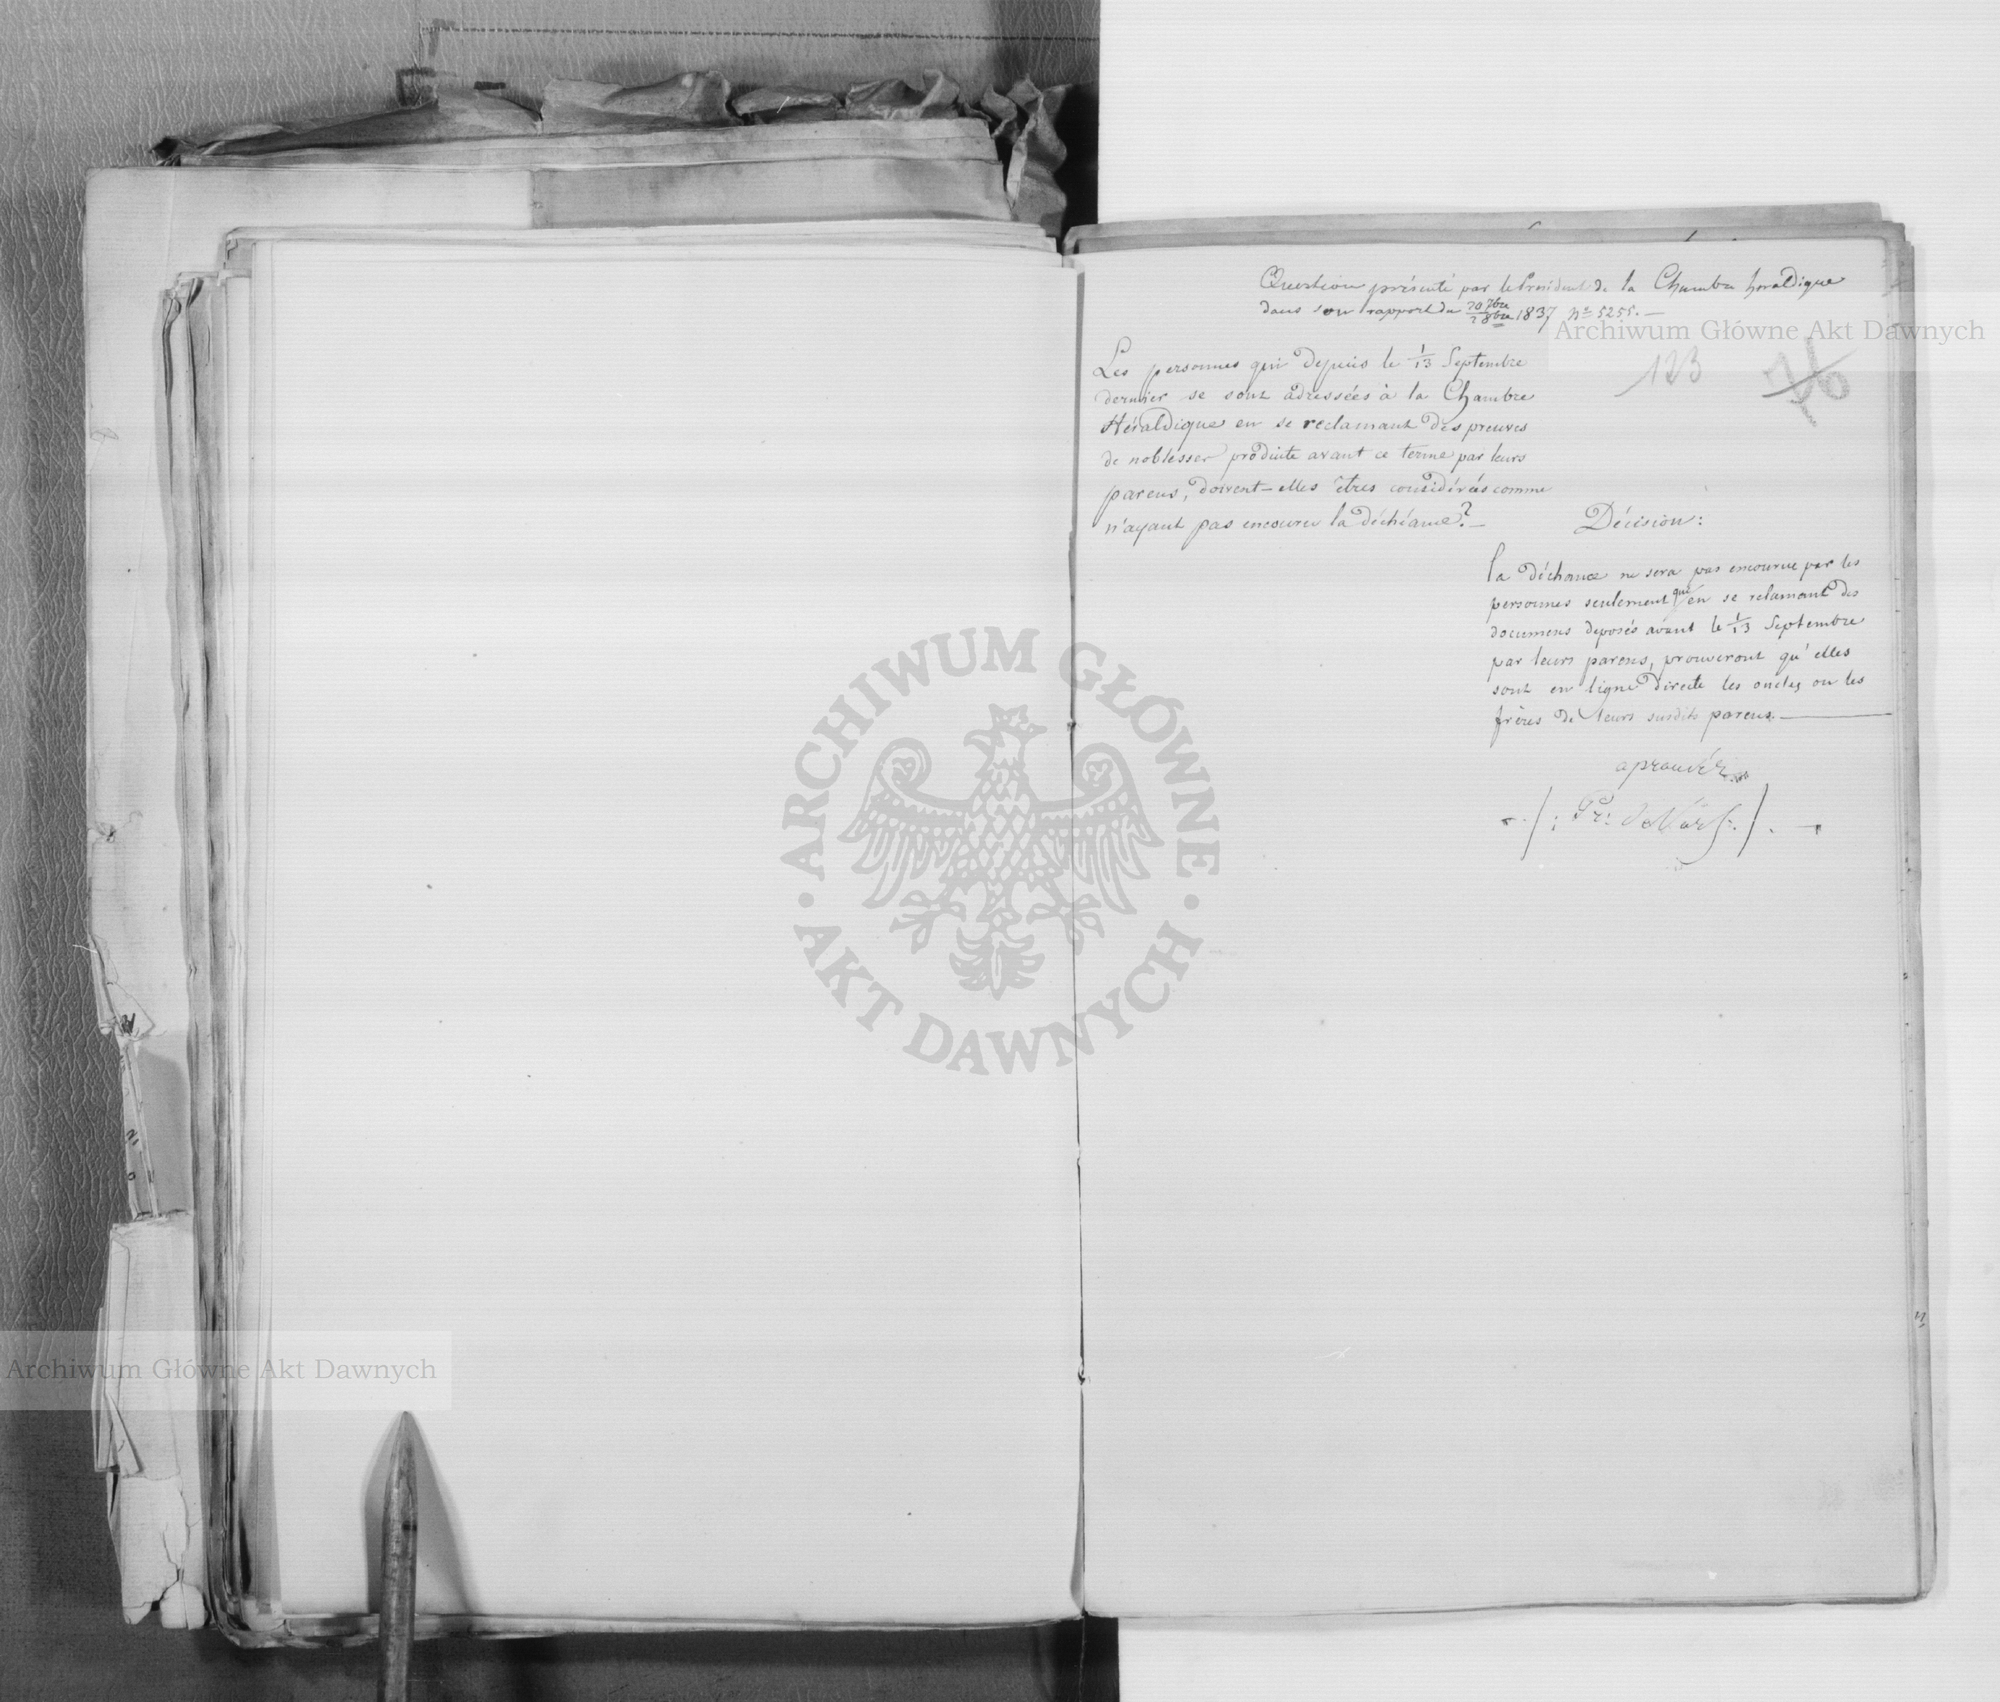 Question présenté par le Président de la Chambre héraldique
dans son rapport du 20 7bre/2 8bre 1837 No 5255. —
Archiwum Główne Akt Dawnych
123
Les personnes qui depuis le 1/13 Septembre
dernier se sont adressées à la Chambre
Héraldique en se reclamant des preuves
de noblesse produite avant ce terme par leurs
parens, doivent-elles êtres considérées comme
n'ayant pas encouru la déchéance? —
Décision:
la déchance ne sera pas encourue par les
personnes seulement qui en se relamant des
documens deposés avant le 1/13 Septembre
par leurs parens, prouveront qu'elles
sont en ligne directe les oncles ou les
frères de leurs susdits parens. —
aprouvér
ARCHIWUM GŁÓWNE
AKT DAWNYCH
Archiwum Główne Akt Dawnych